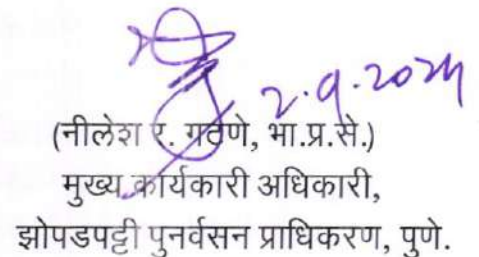 2.9.2024
(नीलेश र. गटणे, भा.प्र.से.)
मुख्य कार्यकारी अधिकारी,
झोपडपट्टी पुनर्वसन प्राधिकरण, पुणे.